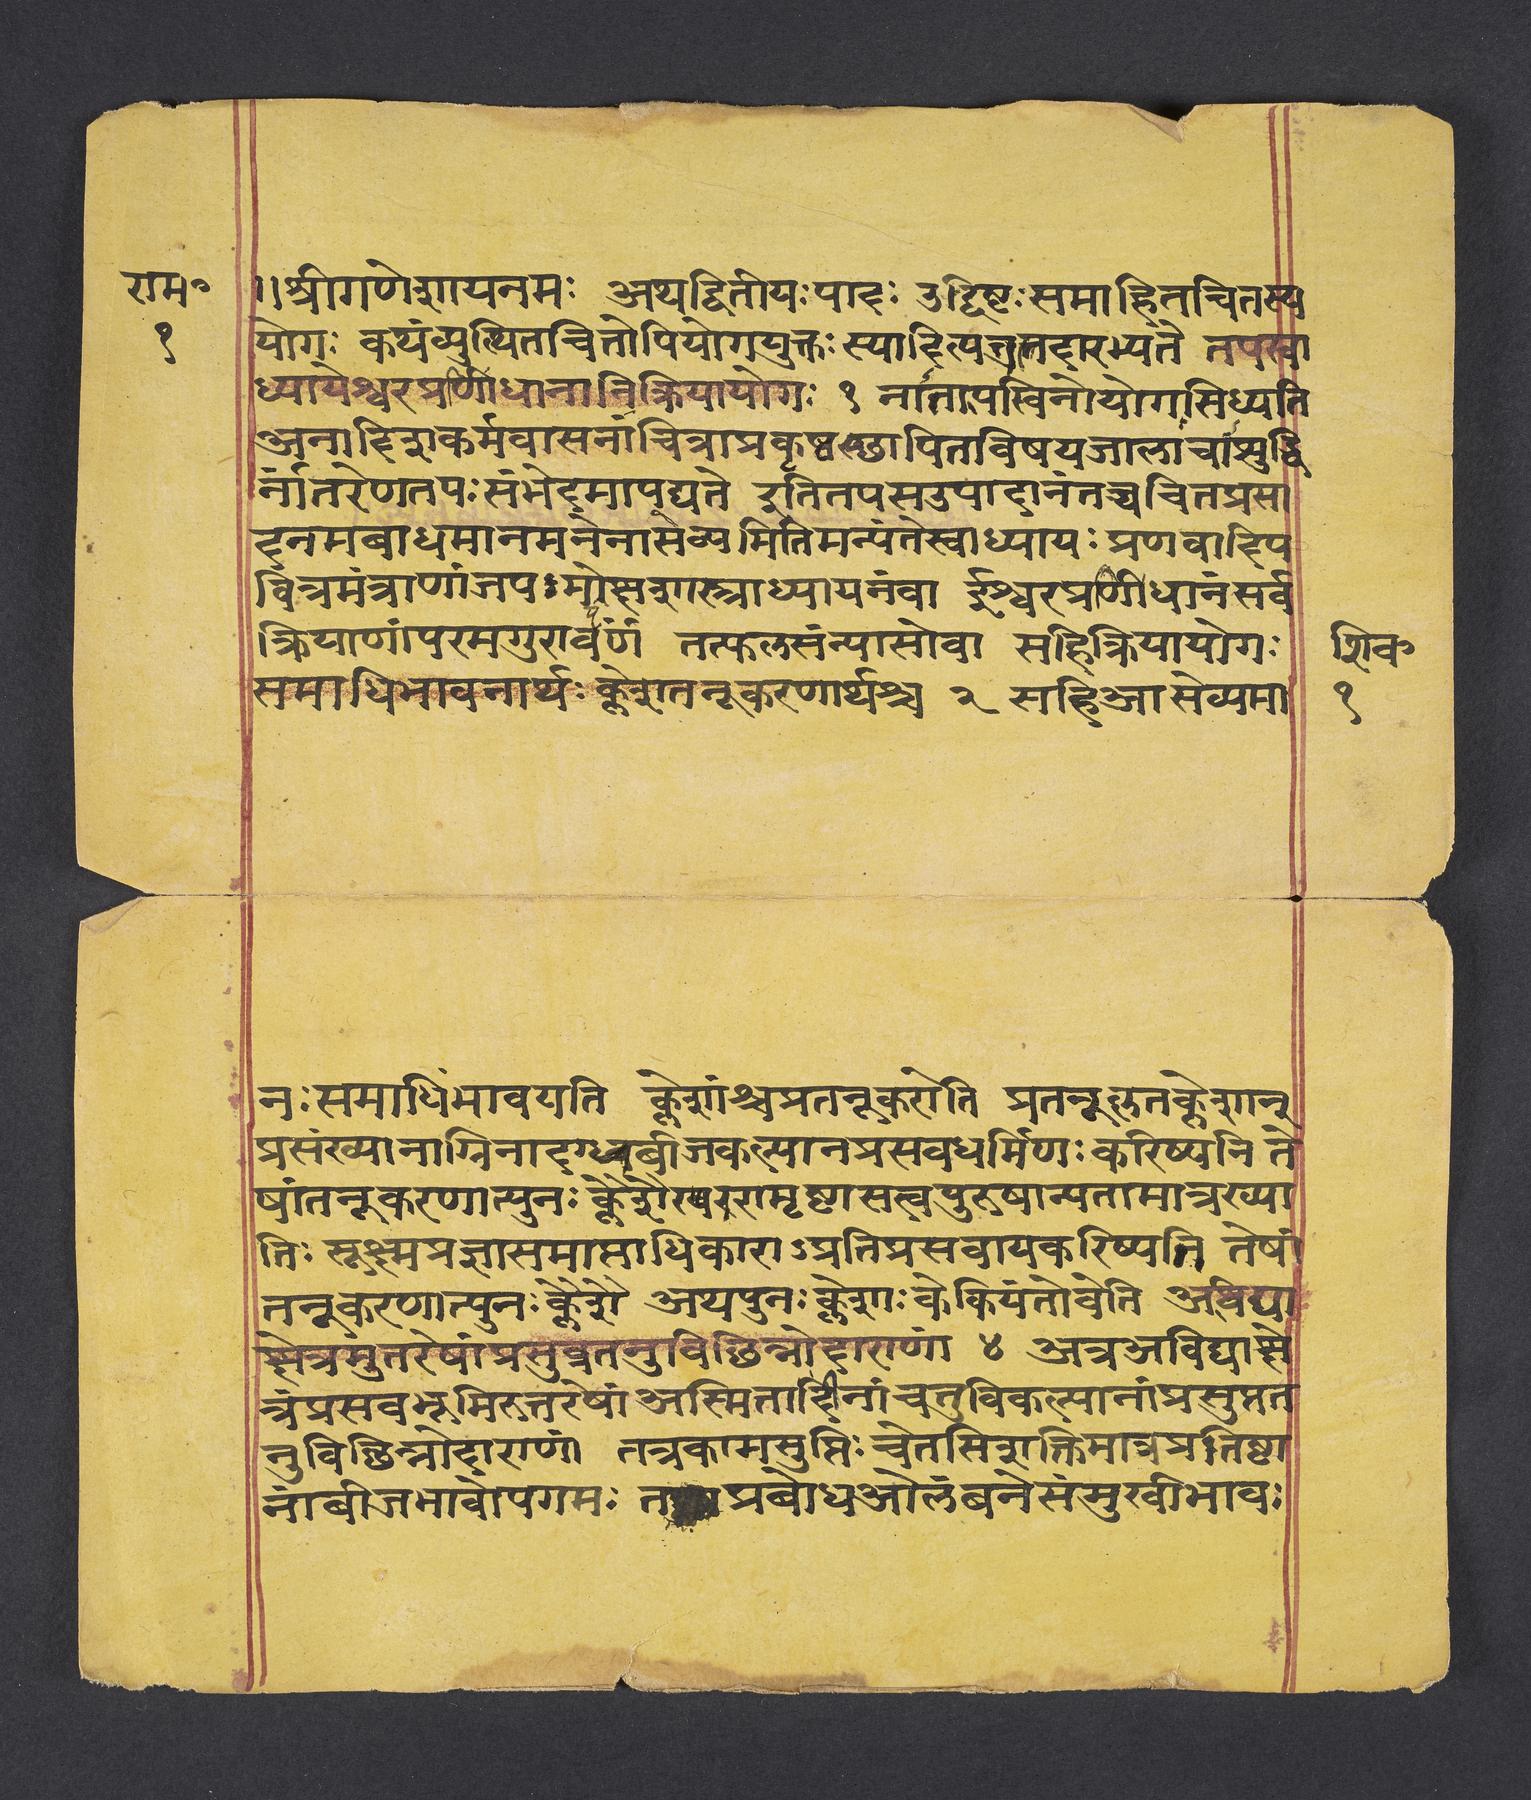 राम॰
१
॥श्रीगणेशायनमः अथद्वितीयःपादः उद्दिष्टःसमाहितचितस्य
योगः कथंव्युत्थितचित्तोपियोगयुक्तःस्यादित्येतत्तदारभ्यते तपस्वा
ध्यायेश्वरप्रणीधानानिक्रियायोगः १ नातापस्विनोयोगसिध्यति
अनादिशकर्मवासनाचित्राप्रकृष्टस्छापितविषयजालाचाशुद्धि
र्नांतरेणतपःसंभेदमापद्यते इतितपसउपादानंतच्चचितप्रसा
दनमबाधमानमनेनासेव्यमितिमन्यंतेस्वाध्यायः प्रणवादिप
वित्रमंत्राणांजपःमोक्षशास्त्राध्यायनंवा ईश्वरप्रणीधानंसर्व
क्रियाणांपरमगुरावर्पणं तत्फलसंन्यासोवा सहिक्रियायोगः
समाधिभावनार्थःक्लेशतनूकरणार्थश्च २ सहिआसेव्यमा
शिव॰
१
नःसमाधिंभावयति क्लेशांश्चप्रतनूकरोति प्रतनूकृतक्लेशान्
प्रसंख्यानाग्निनादग्धबीजकल्पानप्रसवधर्मिणःकरिष्यति ते
षांतनूकरणात्पुनःक्लेशैरपरामृष्टासत्वपुरुषान्यतामात्रख्या
तिः सूक्ष्मप्रज्ञासमाप्ताधिकाराऽप्रतिप्रसवायकरिष्यति तेषां
तनूकरणात्पुनःक्लेशै अथपुनःक्लेशाःकेकियंतोवेति अविद्या
क्षेत्रमुतरेषांप्रसुप्ततनुविछिन्नोदाराणां ४ अत्रअविद्याक्षे
त्रंप्रसवभूमिरुत्तरेषांअस्मितादीनांचतुविकल्पानांप्रसुप्तत
नुविछिन्नोदाराणां तत्रकाप्रसुप्तिःचेतसिशक्तिमात्रप्रतिष्टा
नांबीजभावोपगमः त प्रबोधओलंबनेसंमुखीभावः